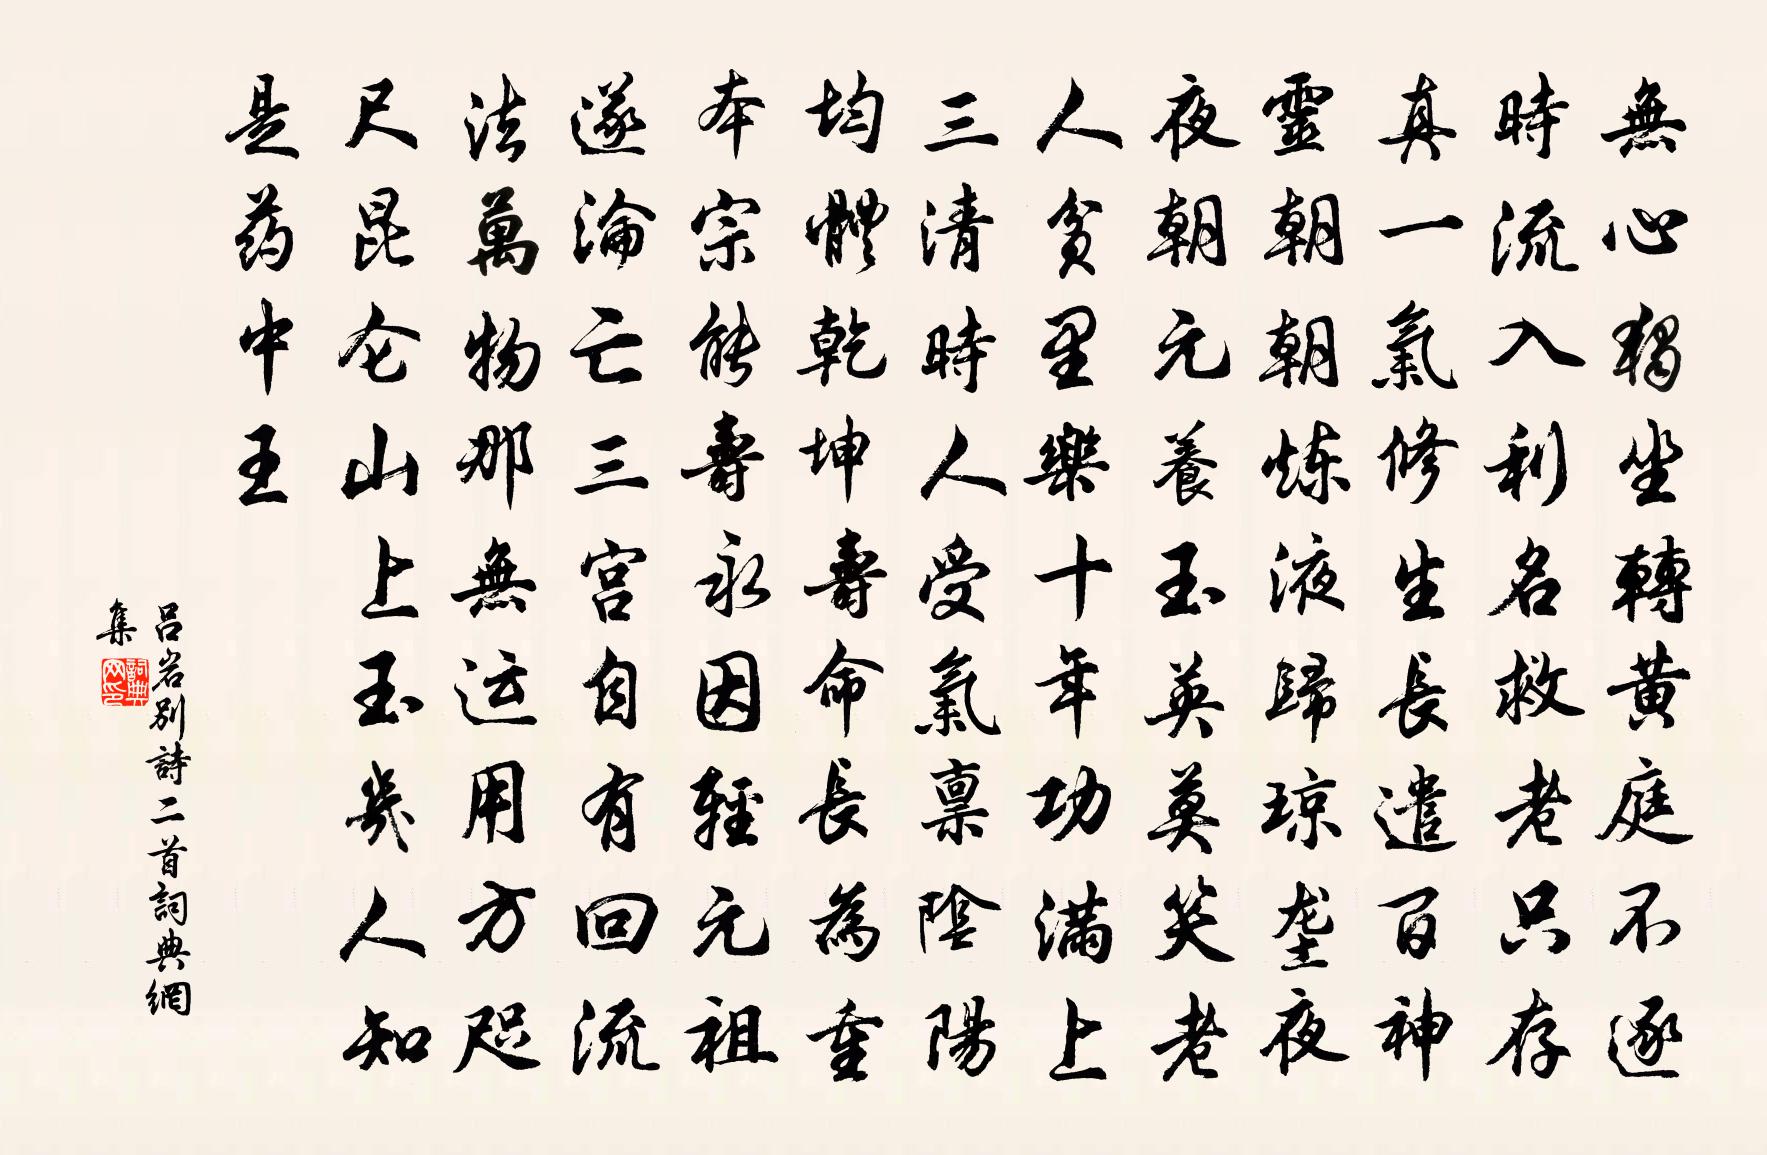 無心獨坐轉黃庭不逐
時流入利名救老只存
真一氣修生長遣百神
靈朝朝炼液歸琼垄夜
夜朝元養玉英莫笑老
人貧里樂十年功滿上
三清時人受氣禀陰陽
均體乾坤壽命長為重
本宗能壽永因輕元祖
遂淪亡三宫自有回流
法萬物那無运用方咫
尺昆仑山上玉幾人知
是药中王
吕岩别詩二首詞典網
集
詞典网印